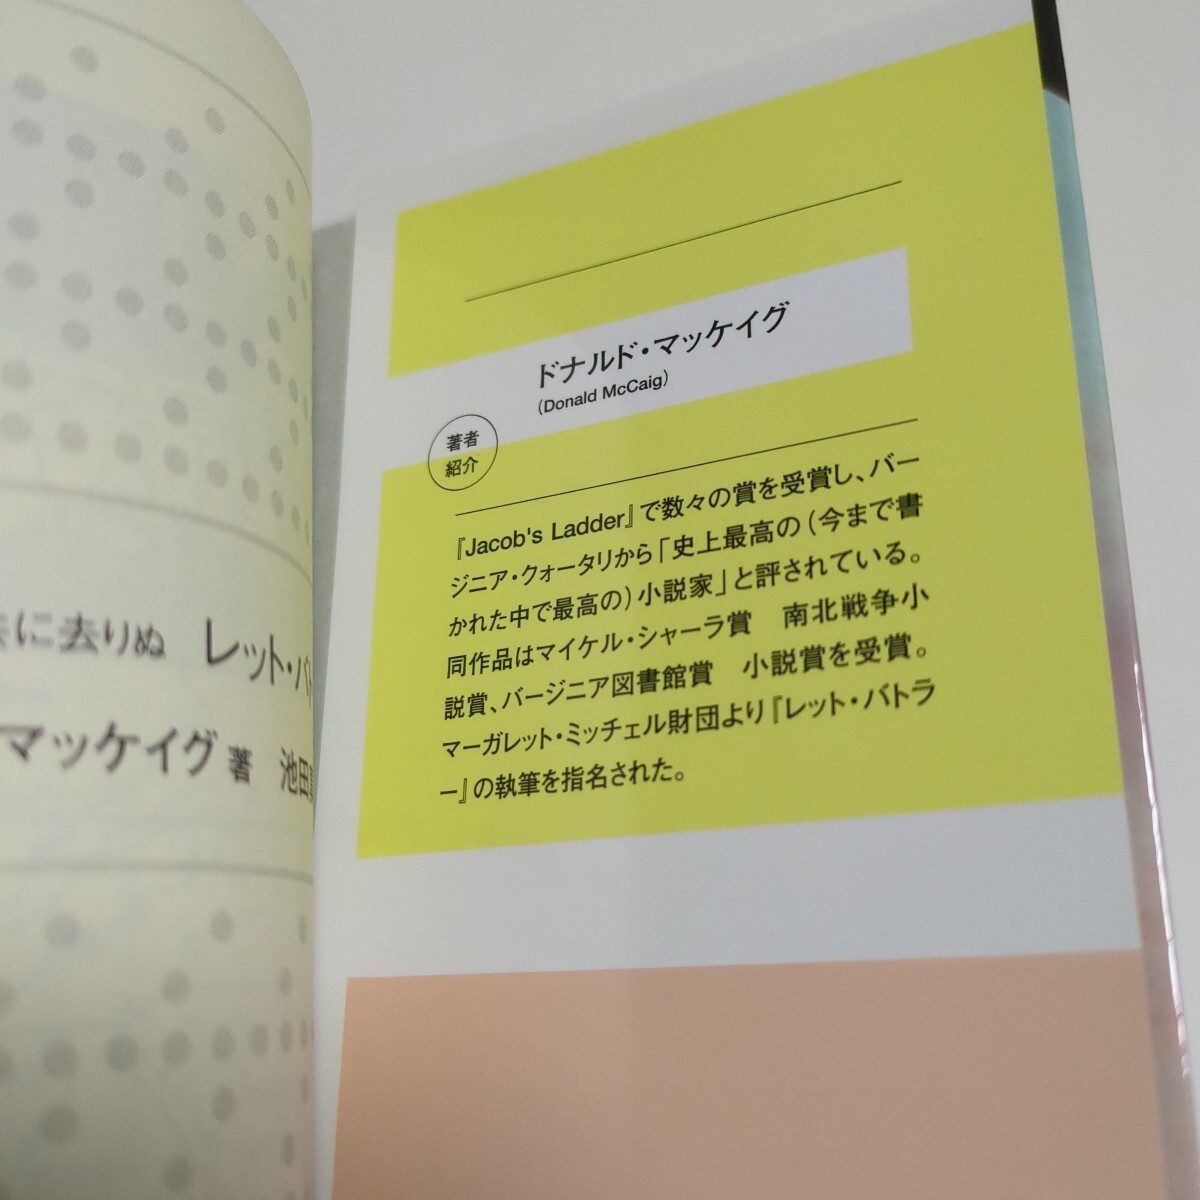 に去りぬ レット・バ
マッケイグ 著 池田
ドナルド・マッケイグ
(Donald McCaig)
著者
紹介
『Jacob's Ladder』で数々の賞を受賞し、バー
ジニア・クォータリから「史上最高の（今まで書
かれた中で最高の）小説家」と評されている。
同作品はマイケル・シャーラ賞 南北戦争小
説賞、バージニア図書館賞 小説賞を受賞。
マーガレット・ミッチェル財団より『レット・バトラ
ー』の執筆を指名された。